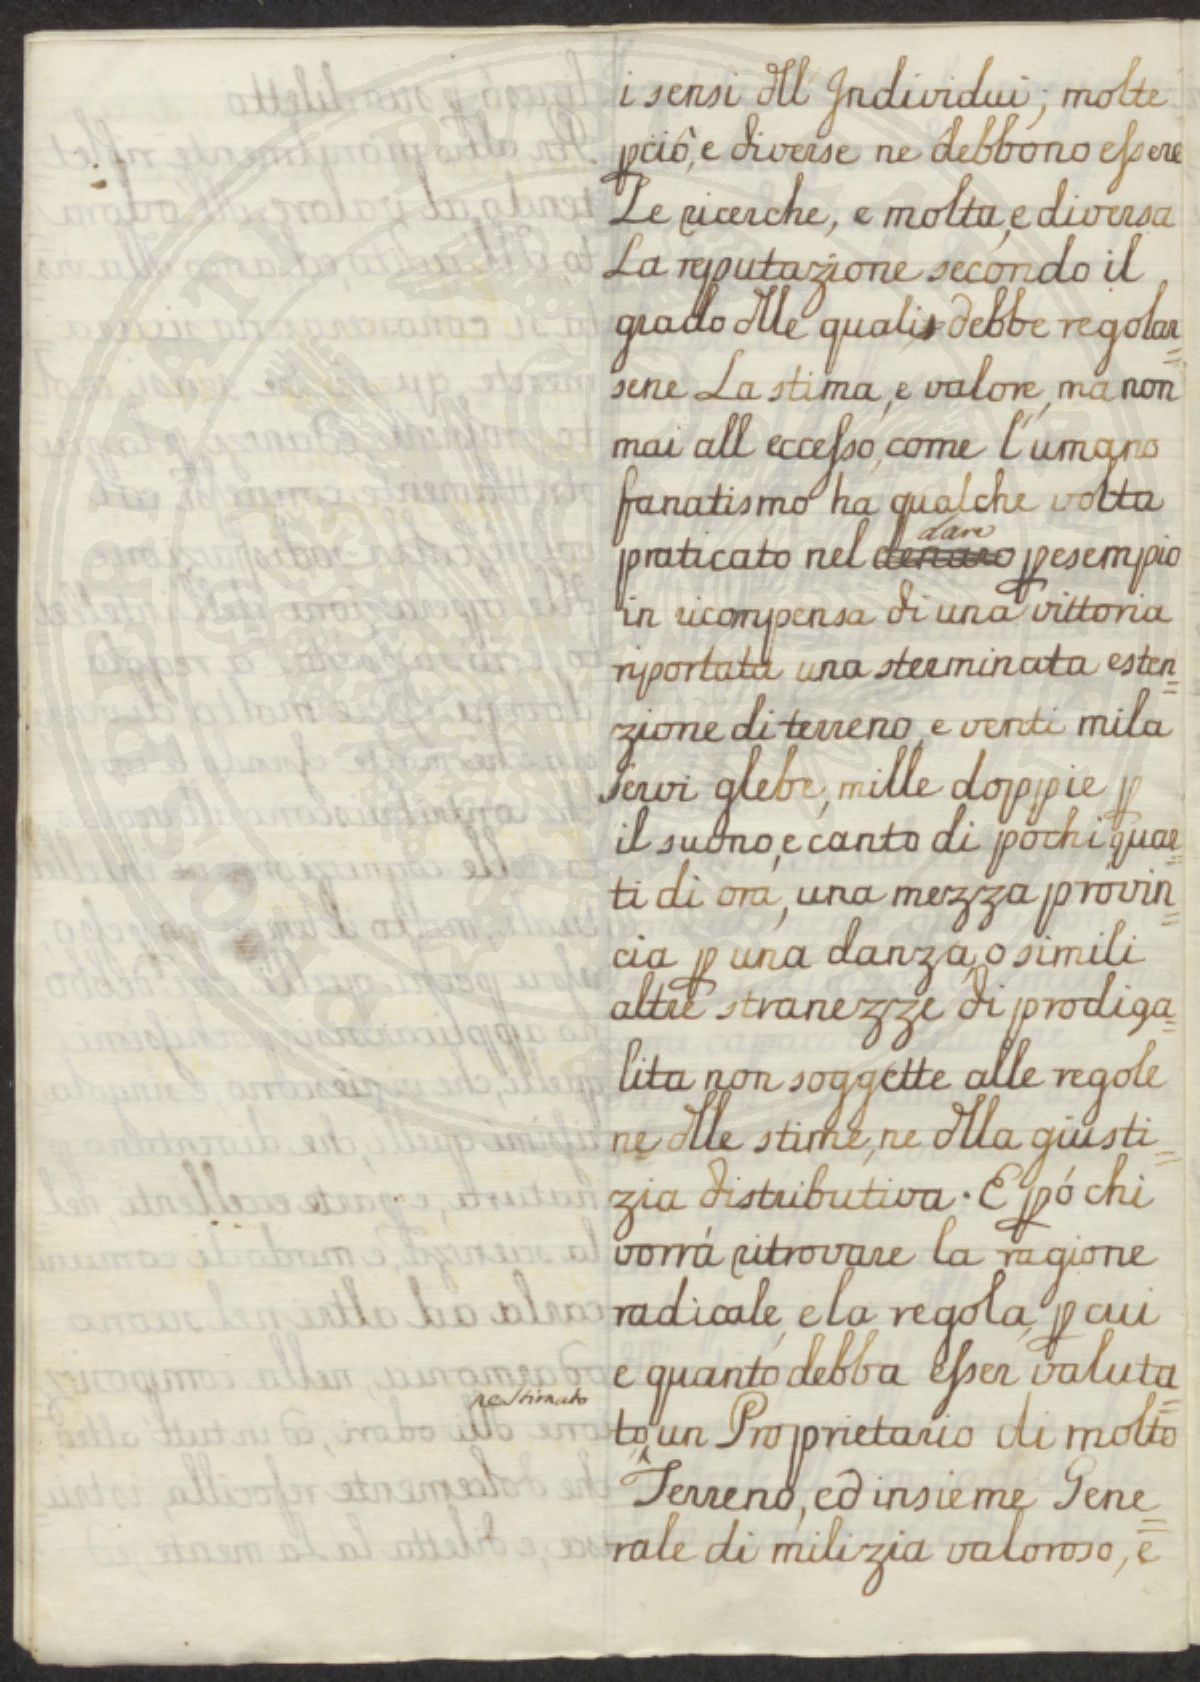 i sensi dll' Individui, molte
pciô, e diverse ne debbono essere
Le ricerche, e molta, e diversa
La reputazione secondo il
grado dlle quali debbe regolar=
sene La stima, e valore, ma non
mai all eccesso, come l'umano
fanatismo ha qualche volta
dare
praticato nel denaro p esempio
in ricompensa di una vittoria
riportata una sterminata esten=
zione di terreno, e venti mila
servi glebe, mille doppie p
il suono, e canto di pochi quar=
ti di ora, una mezza provin=
cia p una danza, o simili
altre stranezze di prodiga=
lita non soggette alle regole
ne dlle stime, ne dlla giusti=
zia distributiva. E pó chi
vorrá ritrovare la ragione
radicale, e la regola, p cui
e quanto debba esser valuta=
restimato
to, un Proprietario di molto
Terreno, ed insieme Gene=
rale di milizia valoroso, e